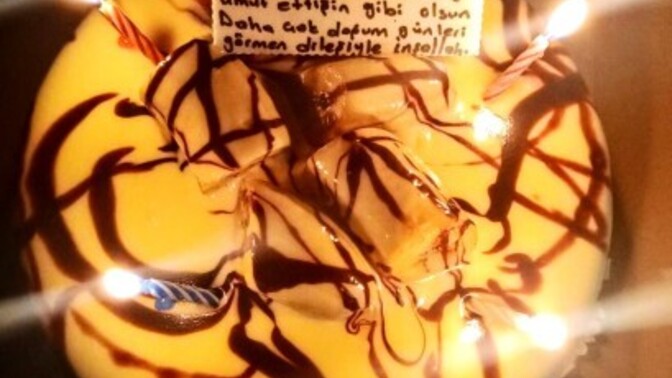 umut ettiğin gibi olsun
Daha çok doğum günleri
görmen dileğiyle inşallah.